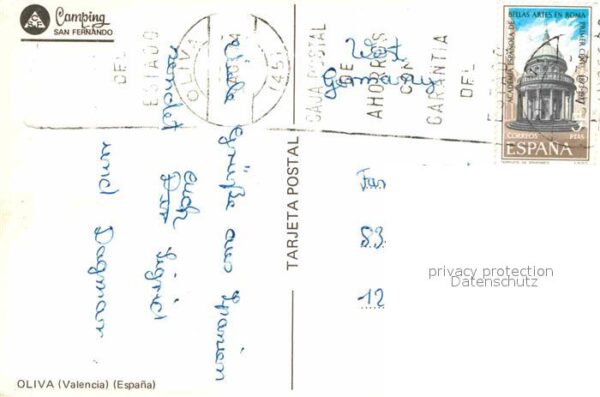 Camping
SAN FERNANDO
Viele Grüße aus Spanien
sendet euch
Sigrid
und Dagmar
OLIVA (Valencia) (España)
TARJETA POSTAL
OLIVA
1451
CAJA POSTAL
DE
AHORROS
CON
GARANTIA
DEL
ESTADO
DEL
ESTADO
West
Germany
12
ACADEMIA ESPAÑOLA DE
BELLAS ARTES EN ROMA
CORREOS
3
PTAS
ESPAÑA
privacy protection
Datenschutz